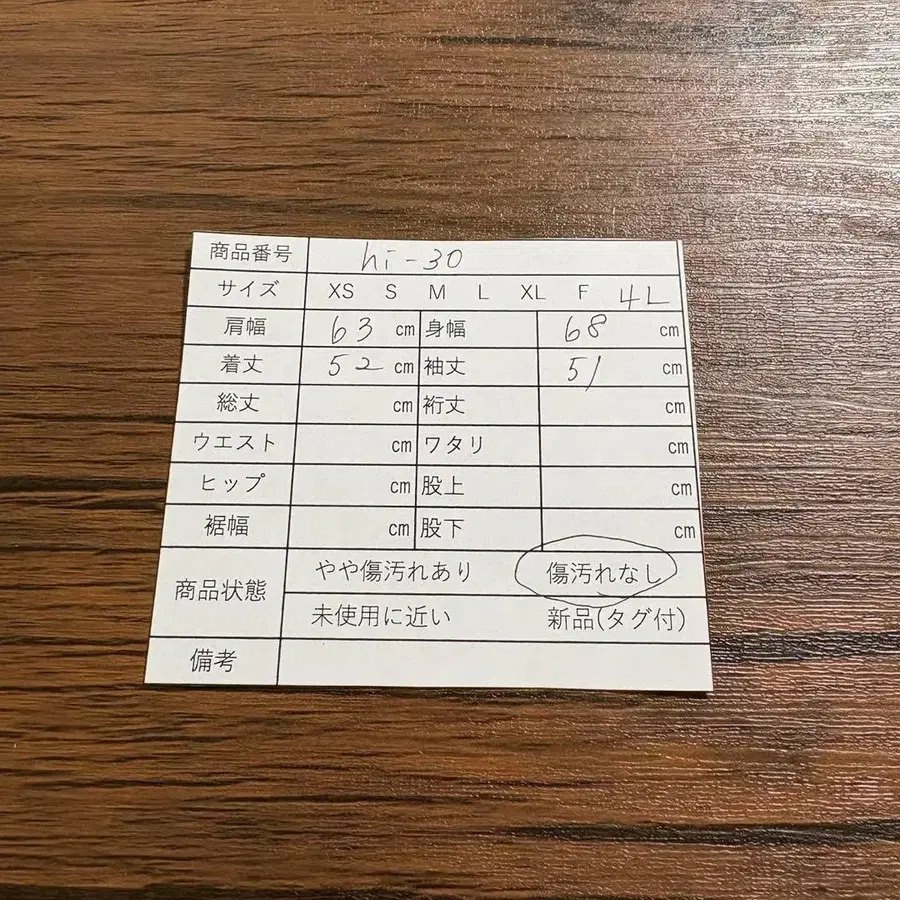 商品番号 hi-30
サイズ XS S M L XL F 4L
肩幅 63 cm 身幅 68 cm
着丈 52 cm 袖丈 51 cm
総丈 cm 裄丈 cm
ウエスト cm ワタリ cm
ヒップ cm 股上 cm
裾幅 cm 股下 cm
商品状態 やや傷汚れあり 傷汚れなし
未使用に近い 新品(タグ付)
備考